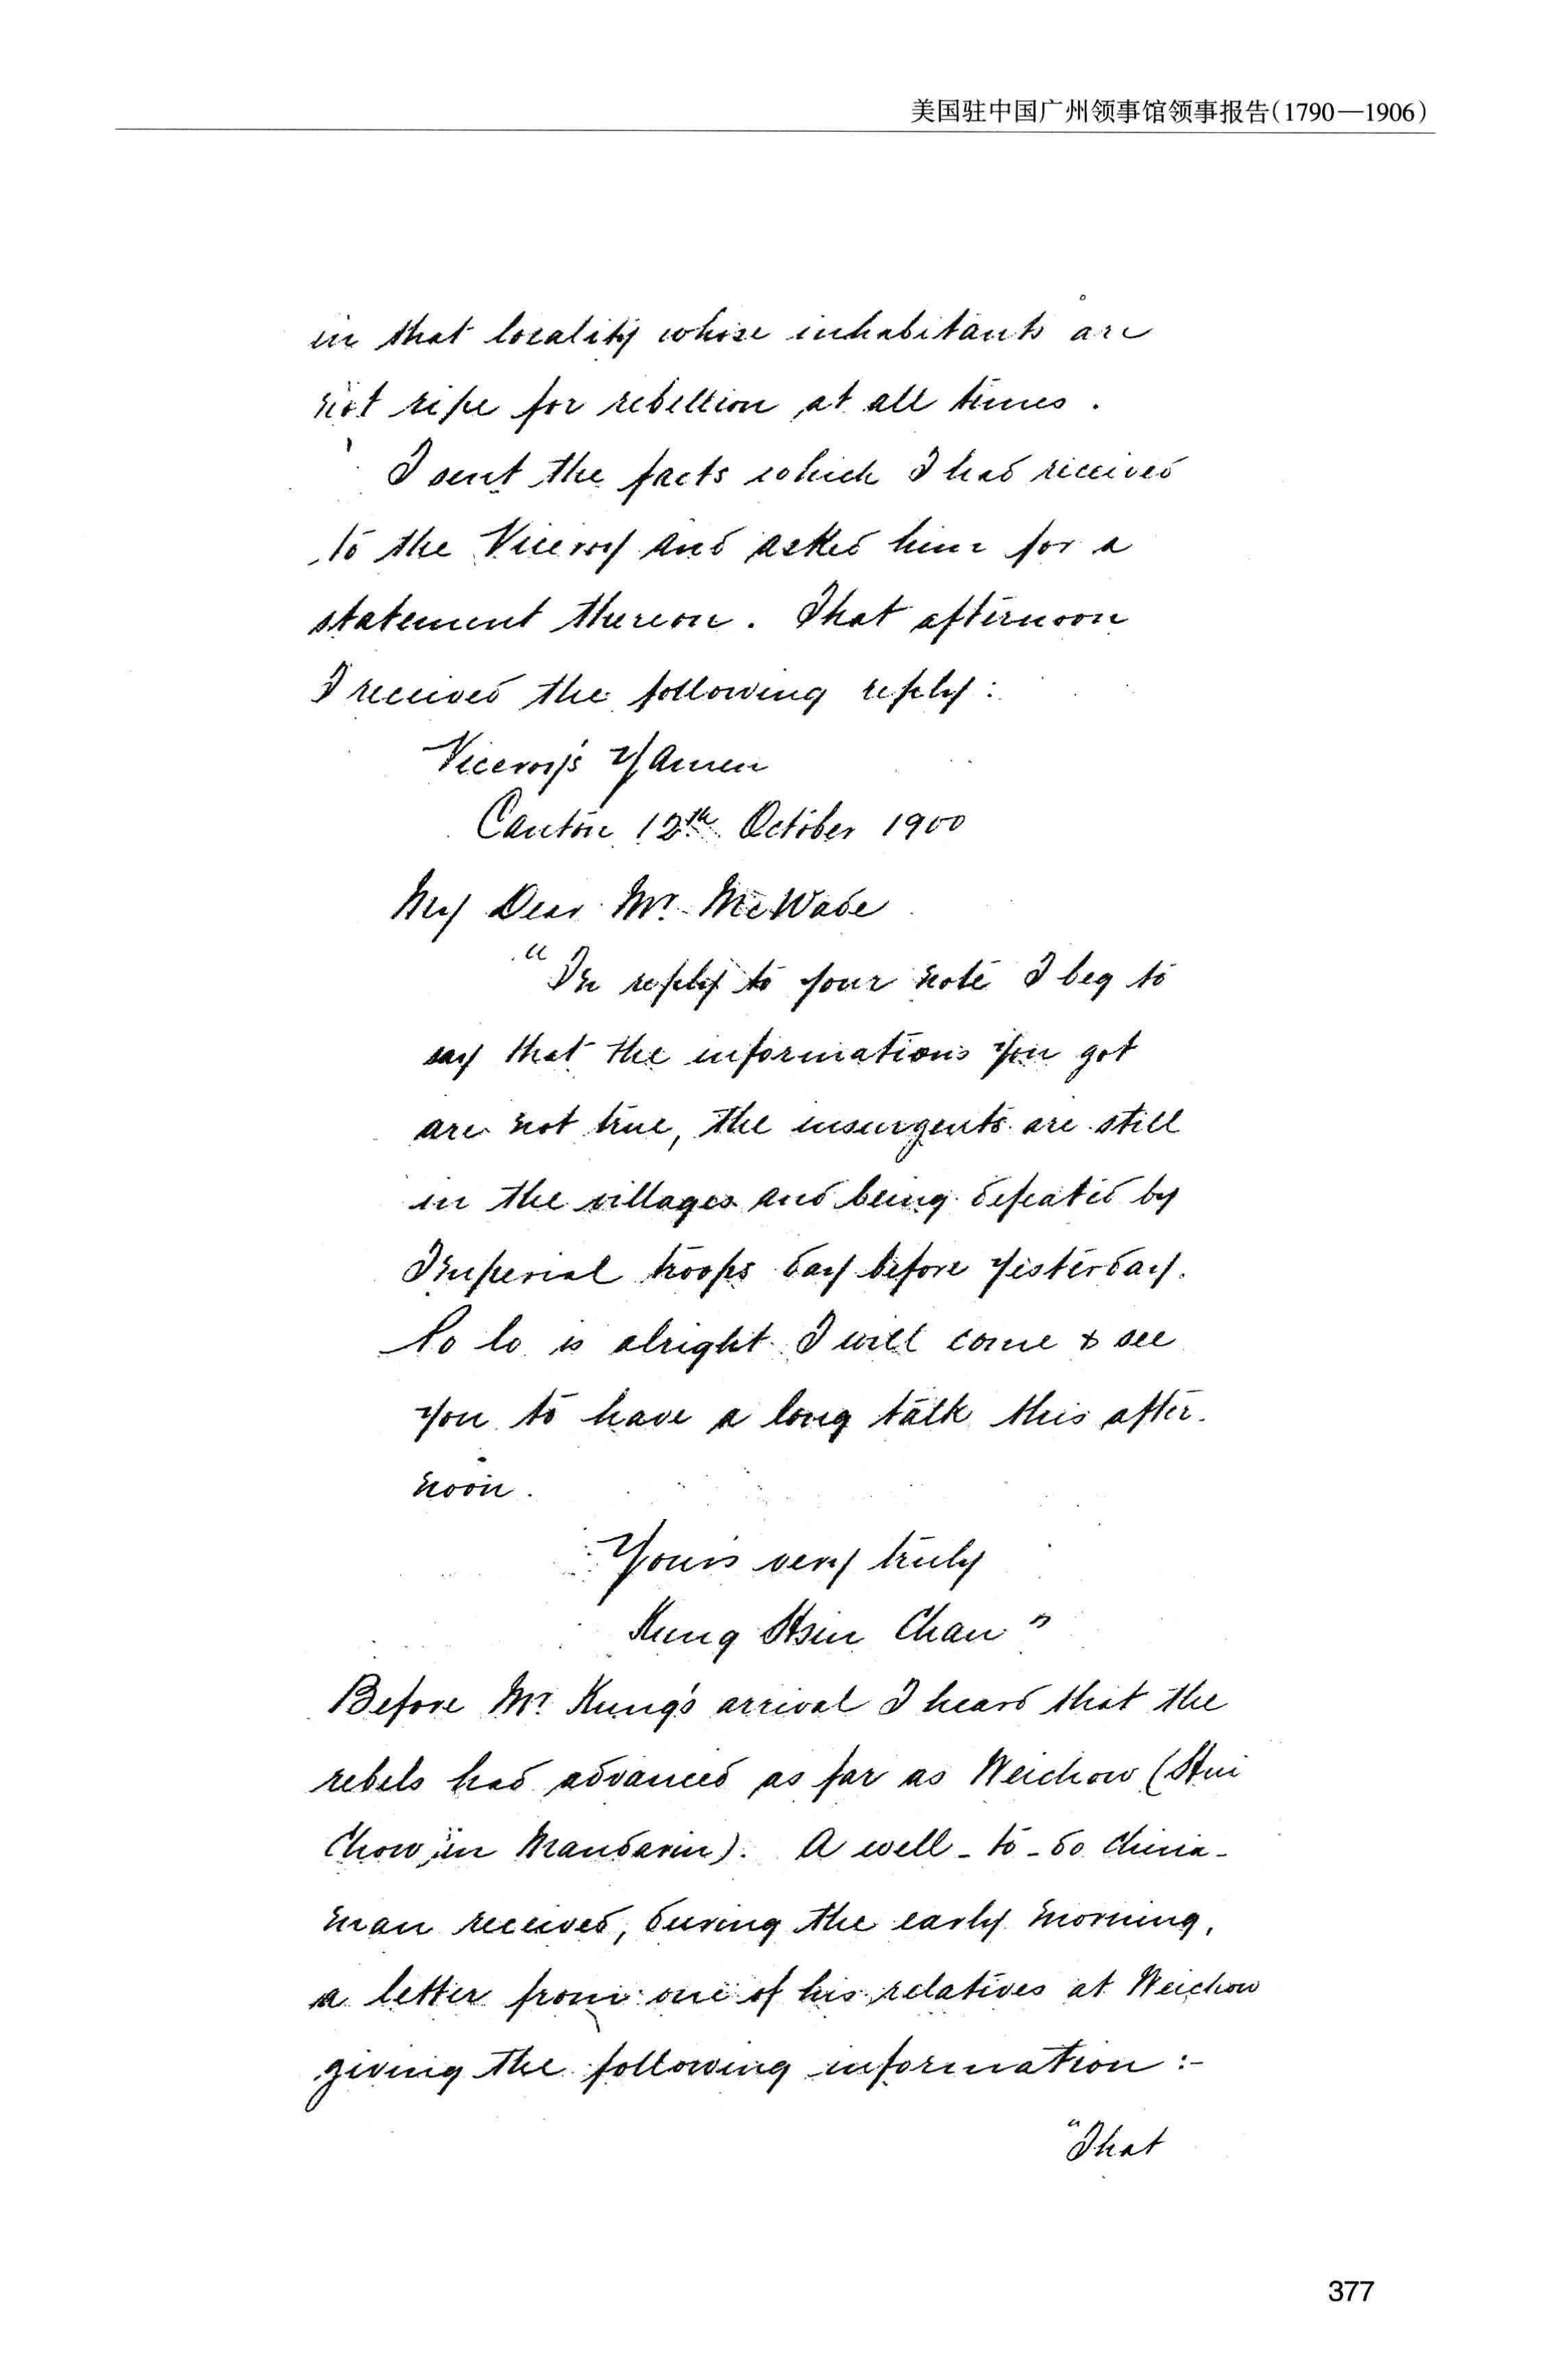 美国驻中国广州领事馆领事报告(1790—1906)
in that locality whose inhabitants are
not ripe for rebellion at all times.
I sent the facts which I had received
to the Viceroy and asked him for a
statement thereon. That afternoon
I received the following reply:
Viceroy's Yamen
Canton 12th October 1900
My Dear Mr. McWade
"In reply to your note I beg to
say that the informations you got
are not true, the insurgents are still
in the villages and being defeated by
Imperial troops day before yesterday.
Po lo is alright. I will come & see
you to have a long talk this after-
noon.
Yours very truly
Kung Hsin Chan"
Before Mr. Kung's arrival I heard that the
rebels had advanced as far as Weichow (Hui
Chow in Mandarin). A well-to-do China-
man received, during the early morning,
a letter from one of his relatives at Weichow
giving the following information:-
"That
377